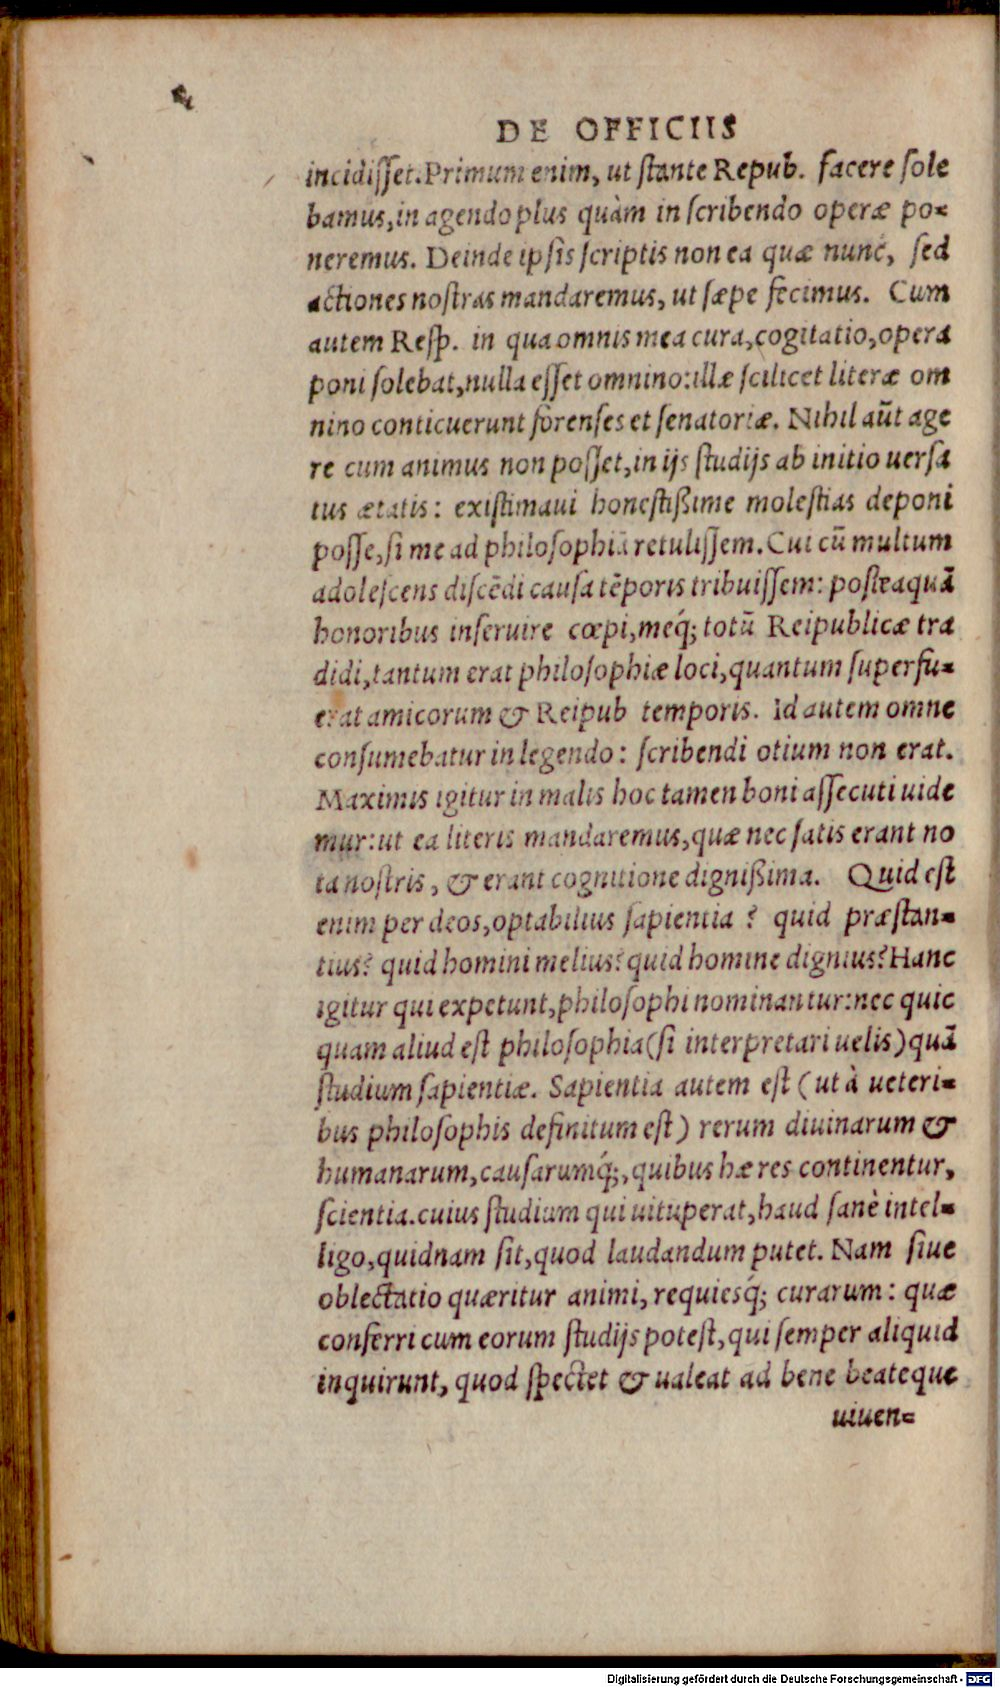 DE OFFICIIS
incidisset. Primum enim, ut stante Repub. facere sole
bamus, in agendo plus quàm in scribendo operæ po=
neremus. Deinde ipsis scriptis non ea quæ nunc, sed
actiones nostras mandaremus, ut sæpe fecimus. Cum
autem Resp. in qua omnis mea cura, cogitatio, opera
poni solebat, nulla esset omnino: illæ scilicet literæ om
nino conticuerunt forenses et senatoriæ. Nihil aūt age
re cum animus non posset, in ijs studijs ab initio uersa
tus ætatis: existimaui honestißime molestias deponi
posse, si me ad philosophiā retulissem. Cui cū multum
adolescens discēdi causa tēporis tribuissem: posteaquā
honoribus inseruire cœpi, meq́; totū Reipublicæ tra
didi, tantum erat philosophiæ loci, quantum superfu=
erat amicorum & Reipub temporis. Id autem omne
consumebatur in legendo: scribendi otium non erat.
Maximis igitur in malis hoc tamen boni assecuti uide
mur: ut ea literis mandaremus, quæ nec satis erant no
ta nostris, & erant cognitione dignißima. Quid est
enim per deos, optabilius sapientia? quid præstan=
tius? quid homini melius? quid homine dignius? Hanc
igitur qui expetunt, philosophi nominantur: nec quic
quam aliud est philosophia (si interpretari uelis) quā
studium sapientiæ. Sapientia autem est (ut à ueteri=
bus philosophis definitum est) rerum diuinarum &
humanarum, causarumq́;, quibus hæ res continentur,
scientia. cuius studium qui uituperat, haud sanè intel=
ligo, quidnam sit, quod laudandum putet. Nam siue
oblectatio quæritur animi, requiesq́; curarum: quæ
conferri cum eorum studijs potest, qui semper aliquid
inquirunt, quod spectet & ualeat ad bene beateque
uiuen=
Digitalisierung gefördert durch die Deutsche Forschungsgemeinschaft - DFG